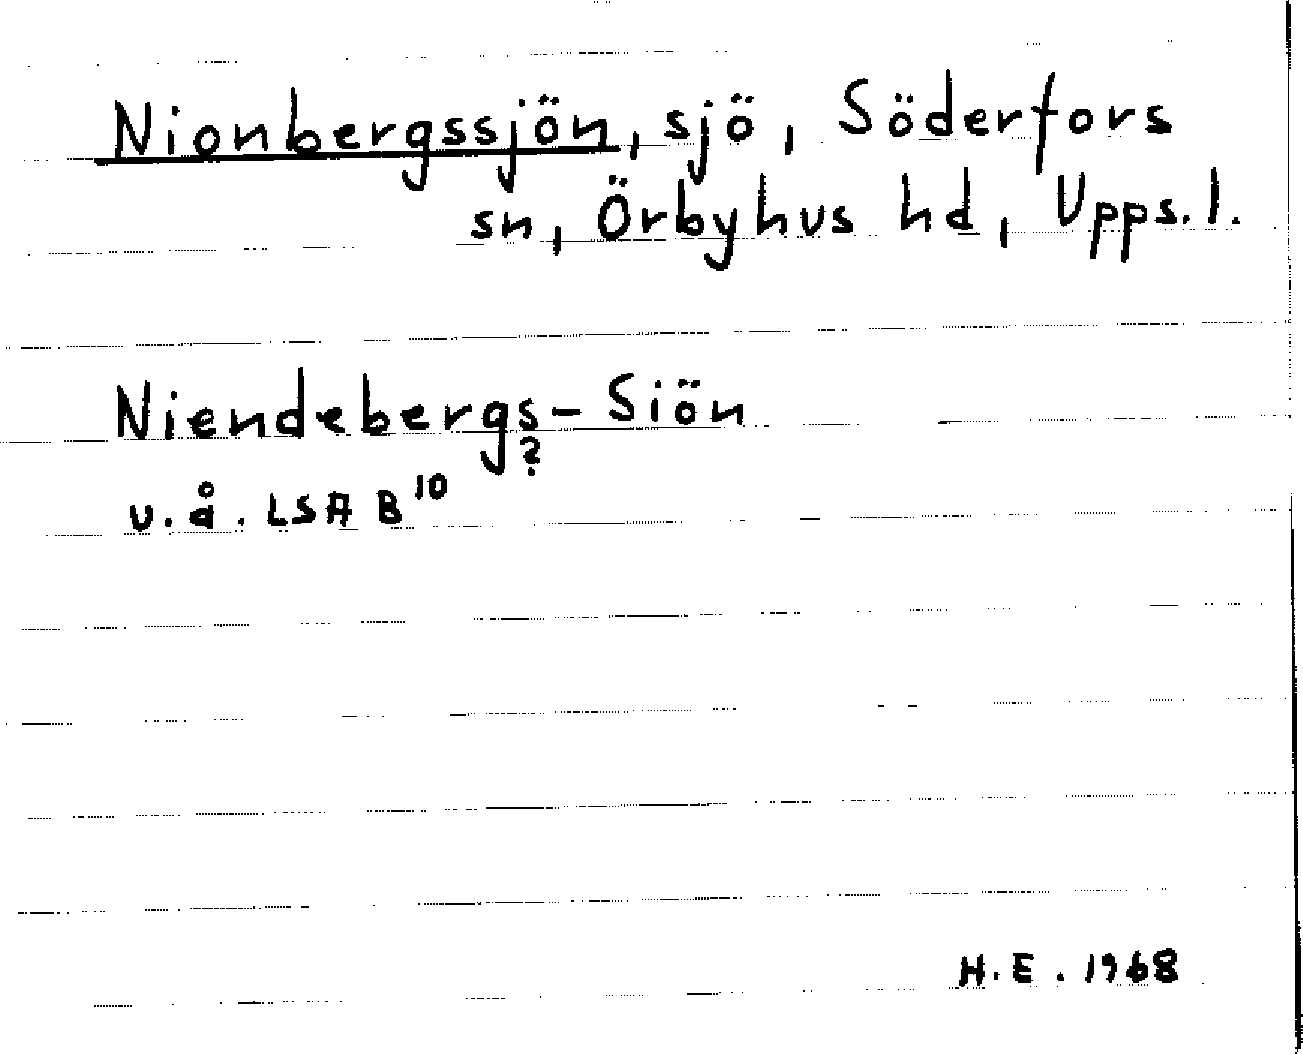 Nionbergssjön, sjö, Söderfors
sn, Örbyhus hd, Upps. l.
Niendebergs-Siön
?
u.å. LSA B¹⁰
H.E. 1968